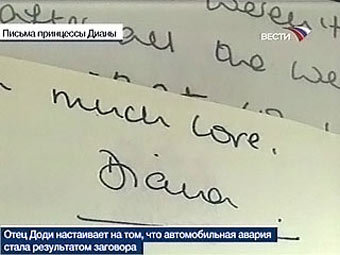 Письма принцессы Дианы
ВЕСТИ
all the we
much love.
Diana
Отец Доди настаивает на том, что автомобильная авария
стала результатом заговора